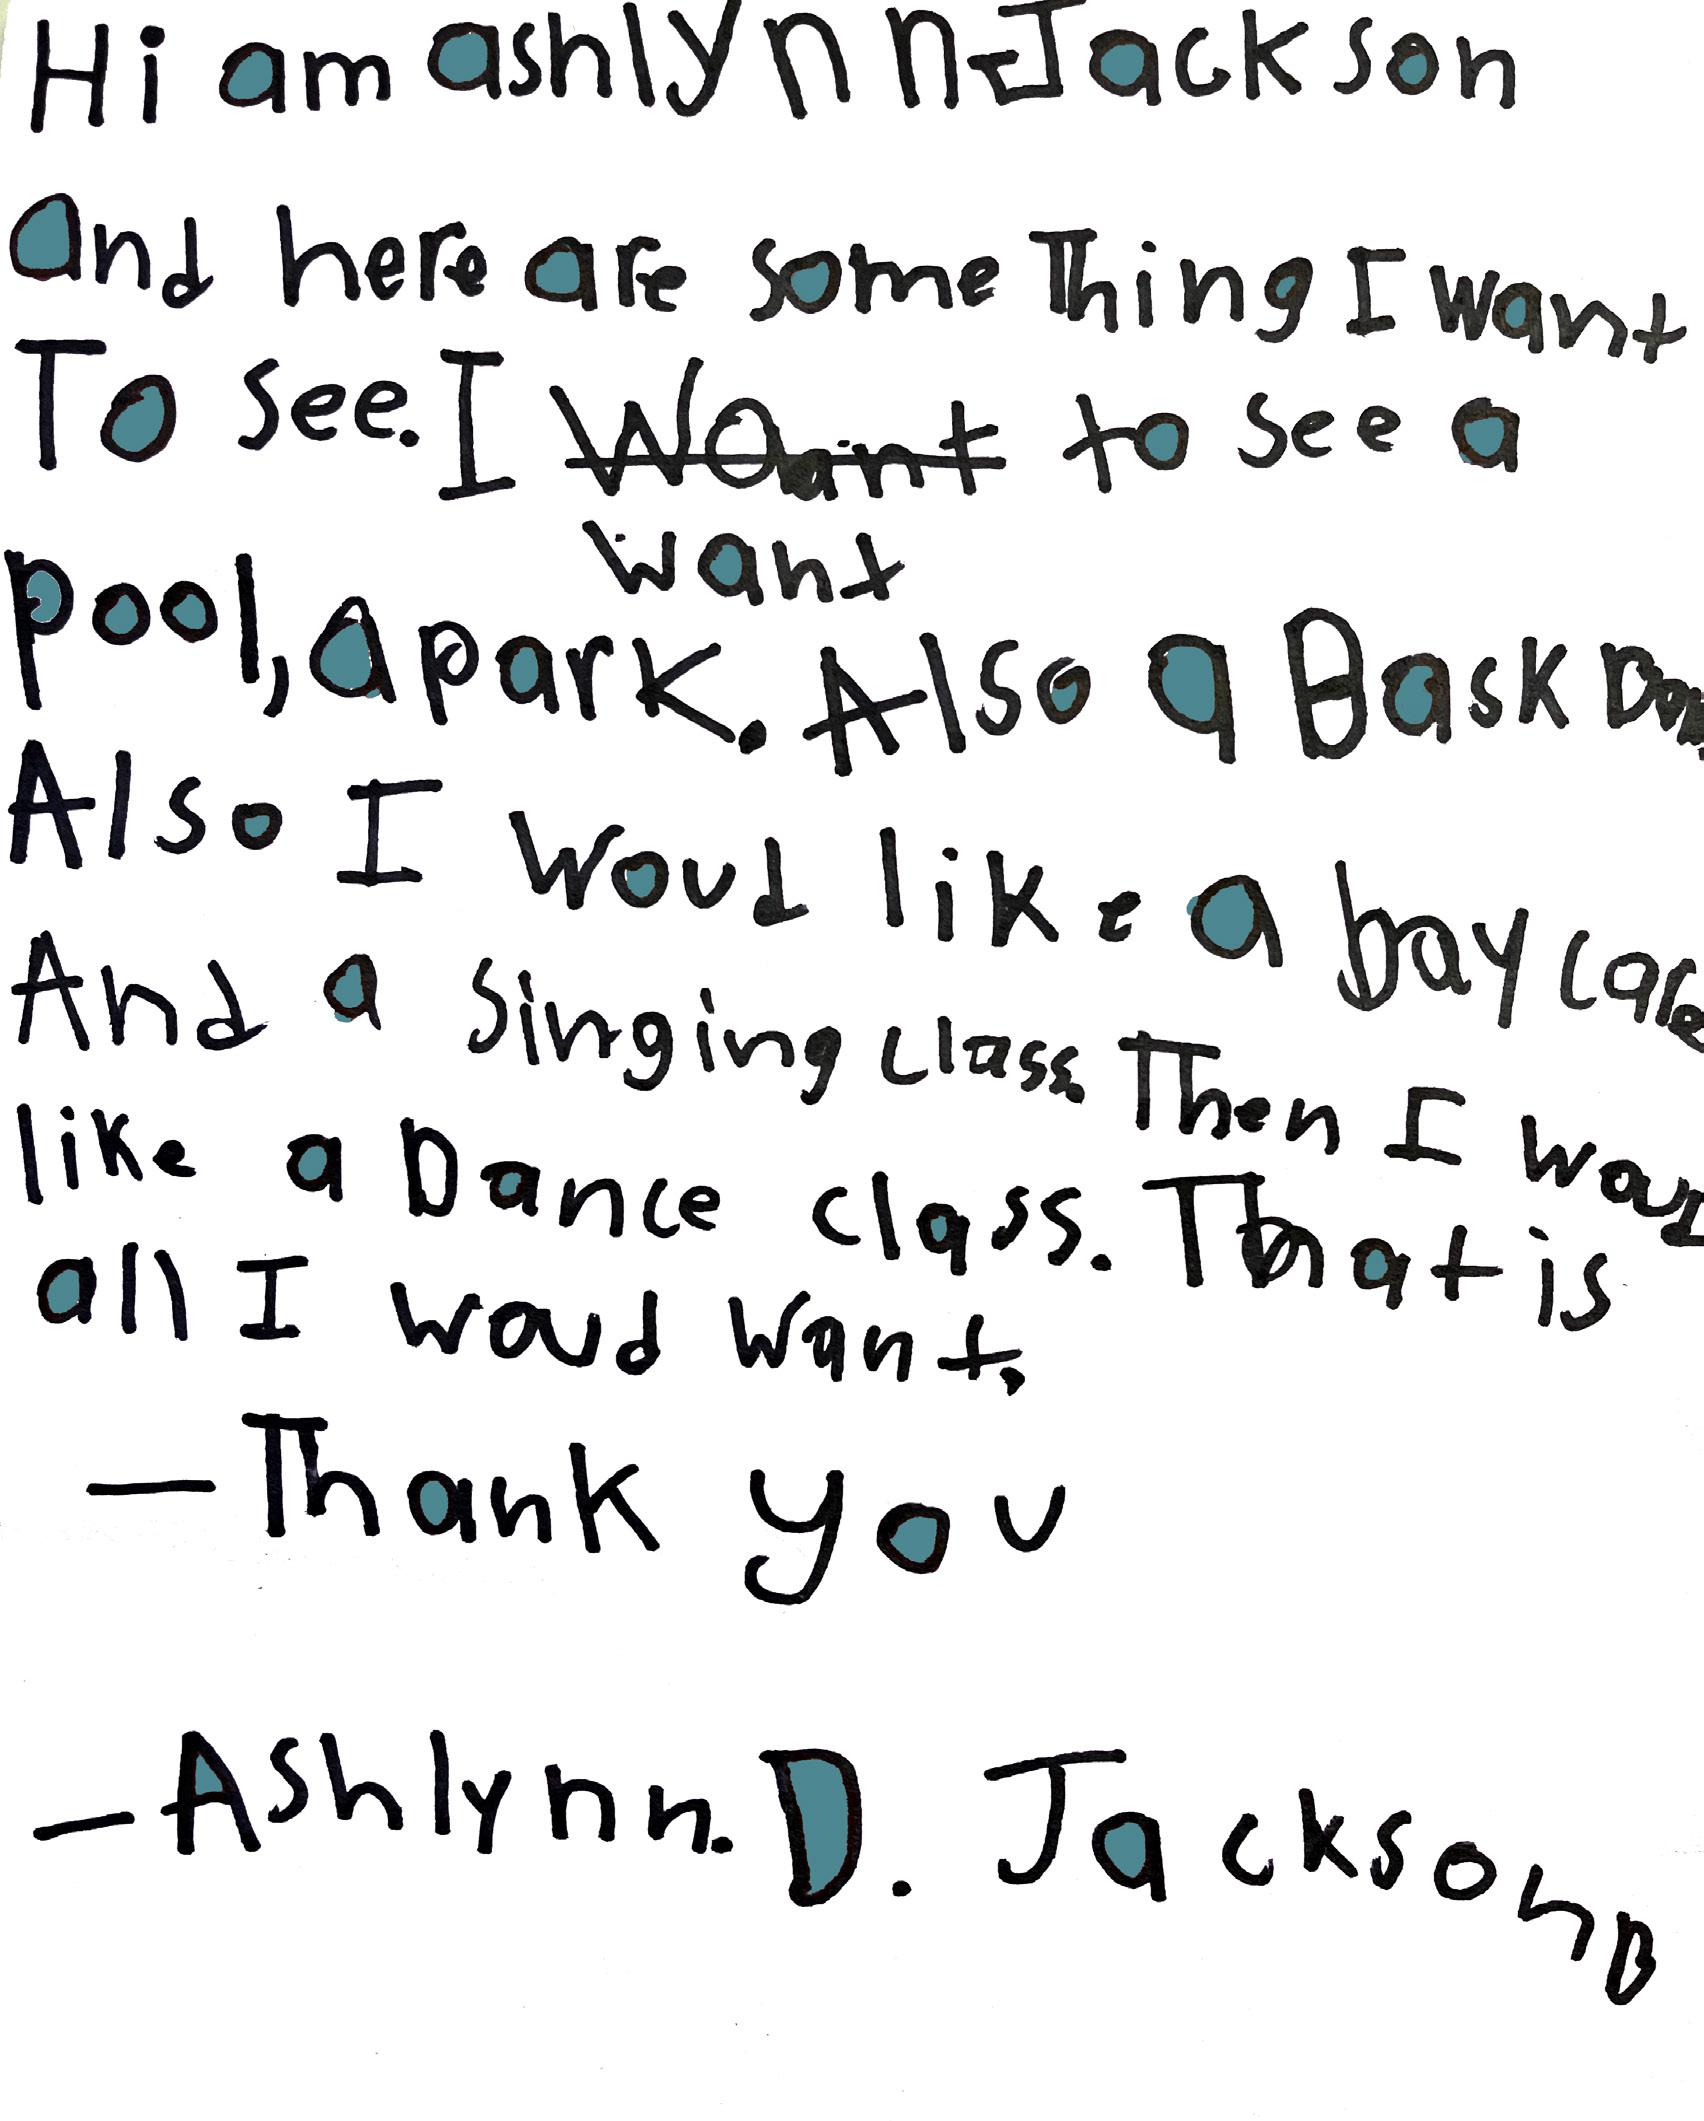 Hi am ashlynn Jackson
and here are some Thing I want
To see. I Woant to see a
want
pool, a park. Also a Bask
Also I Woud like a bay care
And a singing class. Then I woud
like a Dance class. That is
all I woud want.
— Thank you
— Ashlynn. D. Jackson